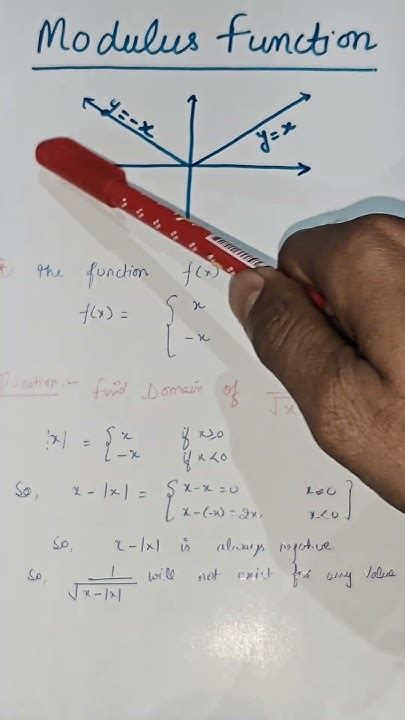 Modulus function
y=-x
y=x
the function f(x)
f(x) = { x
-x
Question:- find Domain of
√x
|x| = { x if x≥0
-x if x<0
So, x-|x| = { x-x=0 x≥0
x-(-x)=2x, x<0 ]
So, x-|x| is always negative
So, 1/√x-|x| will not exist for any value